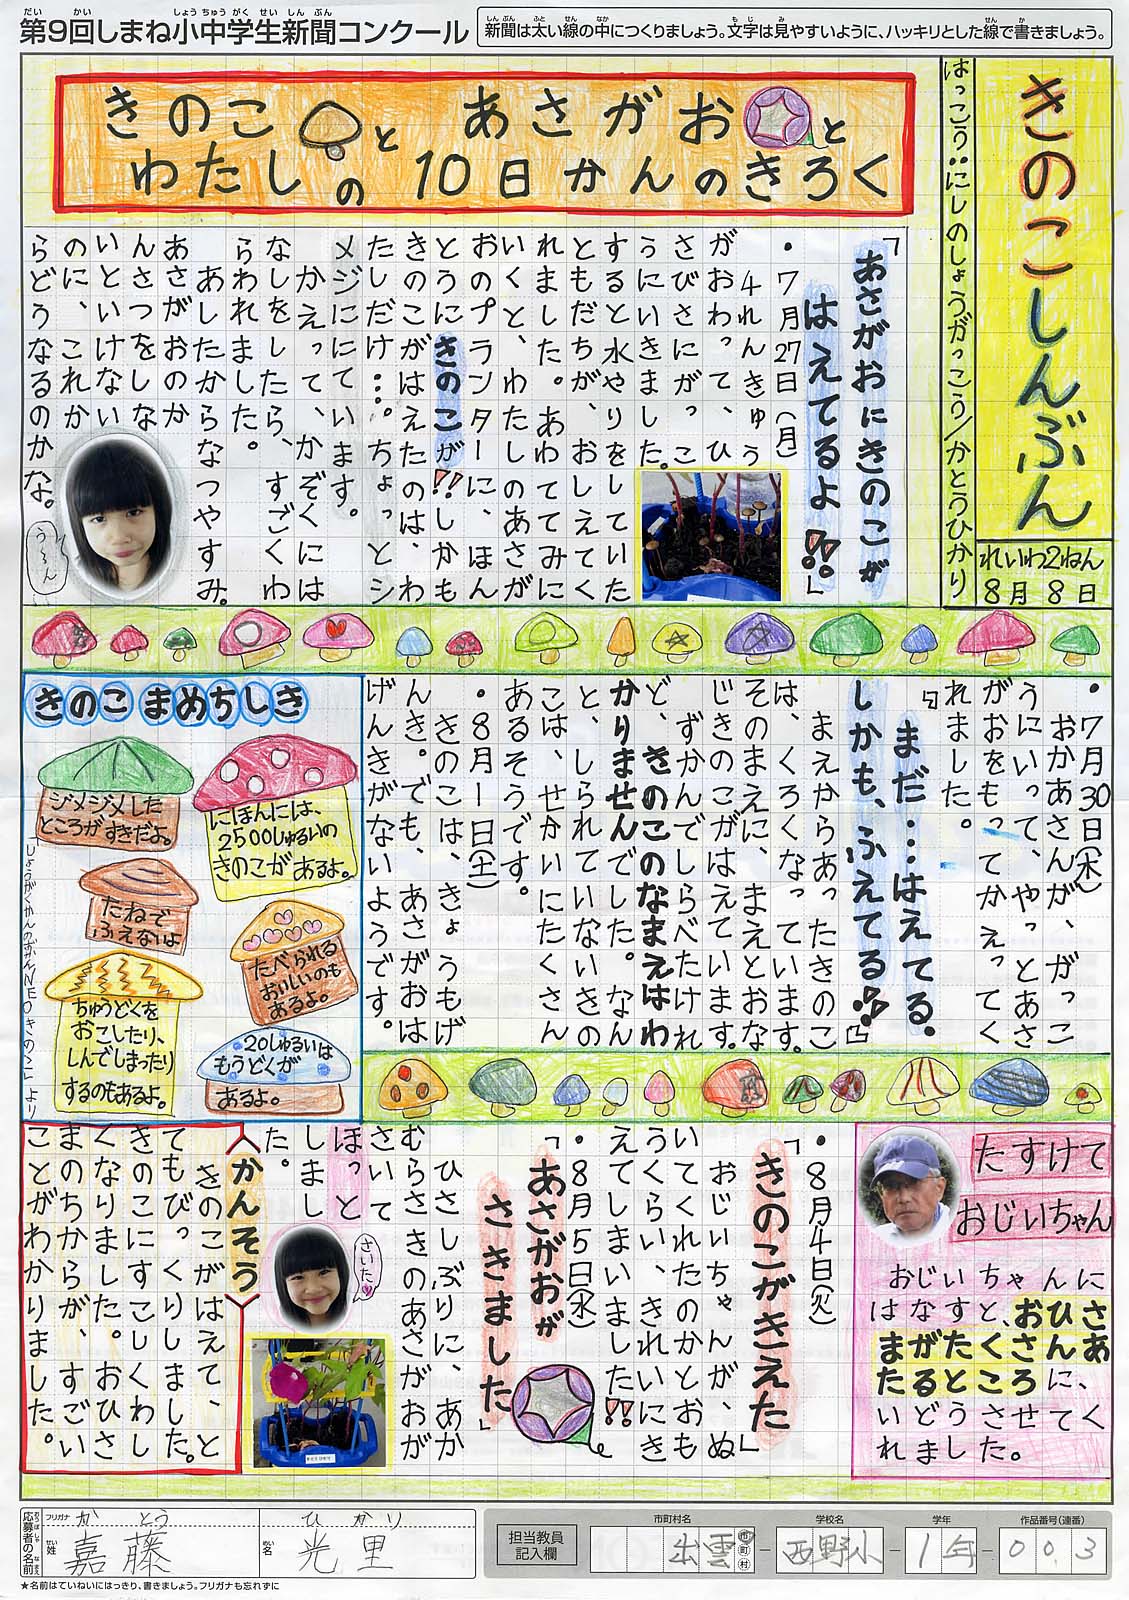 第9回しまね小中学生新聞コンクール
新聞は太い線の中につくりましょう。文字は見やすいように、ハッキリとした線で書きましょう。
きのこしんぶん
れいわ2ねん
8月8日
はっこう:にしのしょうがっこう/かとうひかり
きのこと あさがおと
わたしの10日かんのきろく
「あさがおにきのこが
はえてるよ!!」
・7月27日(月)
4れんきゅう
がおわって、ひ
さびさにがっこ
うにいきました。
すると水やりをしていた
ともだちが、おしえてく
れました。あわててみに
いくと、わたしのあさが
おのプランターに、ほん
とうにきのこが!!しかも
きのこがはえたのは、わ
たしだけ…。ちょっとシ
メジににています。
かえって、かぞくにはは
なしをしたら、すごくわ
らわれました。
あしたからなつやすみ。
あさがおのか
んさつをしな
いといけない
のに、これか
らどうなるのかな。
う~ん
・7月30日(木)
おかあさんが、がっこ
うにいって、やっとあさ
がおをもってかえってく
れました。
「まだ…はえてる。
しかも、ふえてる!!」
まえからあったきのこ
は、くろくなっています。
そのまえに、まえとおな
じきのこがはえています。
ずかんでしらべたけれ
ど、きのこのなまえはわ
かりませんでした。なん
と、しられていないきの
こは、せかいにたくさん
あるそうです。
・8月1日(土)
きのこは、きょうもげ
んき。でも、あさがおは
げんきがないようです。
きのこまめちしき
にほんには、
2500しゅるいの
きのこがあるよ。
ジメジメした
ところがすきだよ。
たねで
ふえないよ
たべられる
おいしいのも
あるよ。
ちゅうどくを
おこしたり、
しんでしまったり
するのもあるよ。
20しゅるいは
もうどくが
あるよ。
「しょうがくかんのずかんNEOきのこ」より
たすけて
おじいちゃん
おじいちゃんに
はなすと、おひさ
まがたくさんあ
たるところに、
いどうさせてく
れました。
・8月4日(火)
「きのこがきえた」
おじいちゃんが、ぬ
いてくれたのかとおも
うくらい、きれいにき
えてしまいました!!
・8月5日(水)
「あさがおが
さきました」
ひさしぶりに、あか
むらさきのあさがおが
さいて
ほっと
しまし
た。
さいた
かんそう
きのこがはえて、と
てもびっくりしました。
きのこにすこしくわし
くなりました。おひさ
まのちからが、すごい
ことがわかりました。
応募者の名前
おうぼしゃ なまえ
フリガナ かとう ひかり
姓 嘉藤
名 光里
★名前はていねいにはっきり、書きましょう。フリガナも忘れずに
担当教員
記入欄
市町村名 出雲 市町村
学校名 西野小
学年 1年
作品番号(連番) 003